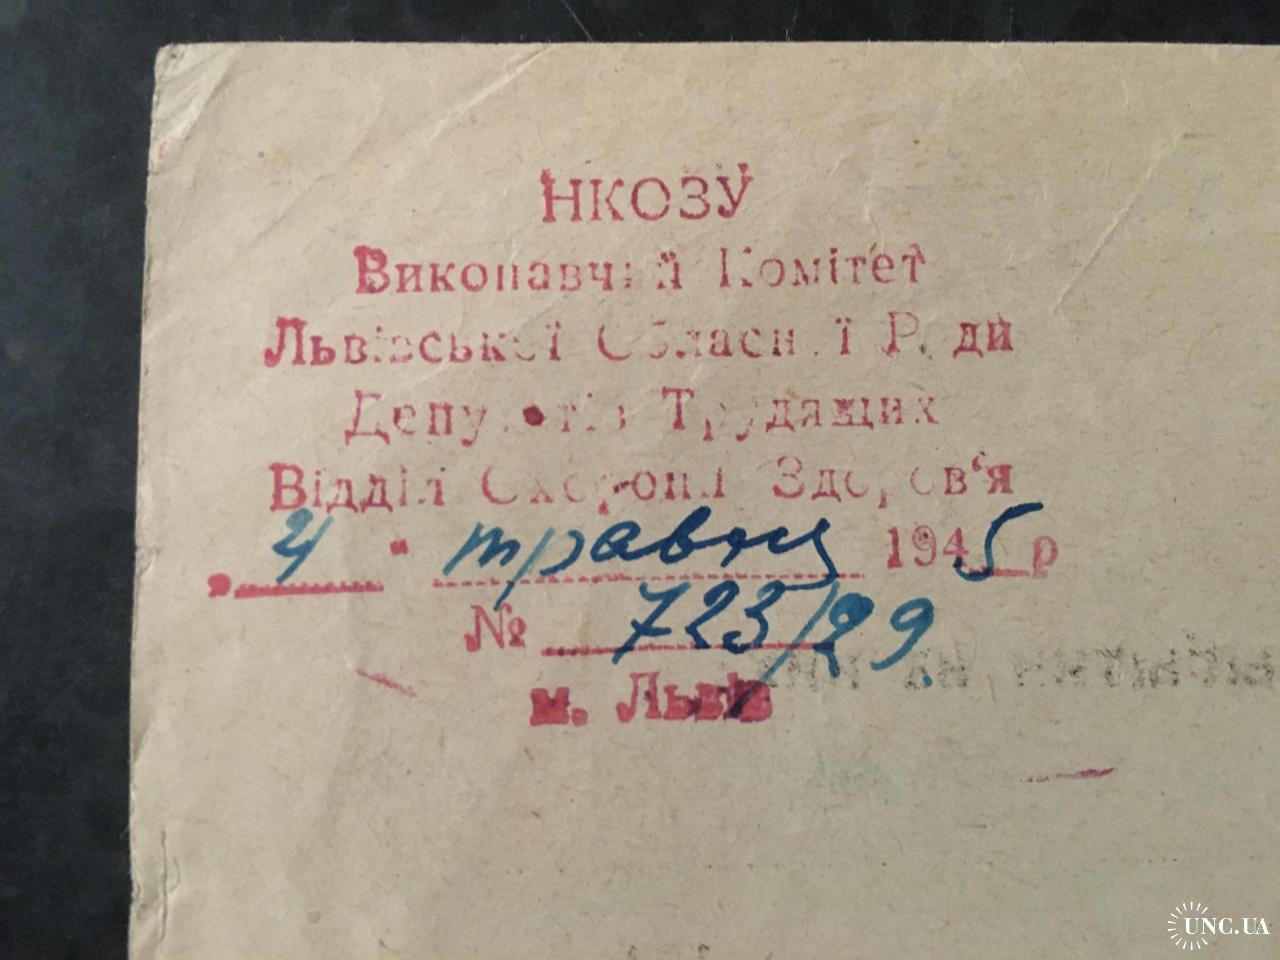 НКОЗУ
Виконавчий Комітет
Львівської Обласної Ради
Депутатів Трудящих
Відділ Охорони Здоров'я
„ 21 " травня 1945 р
№ 723/29.
м. Львів
UNC.UA